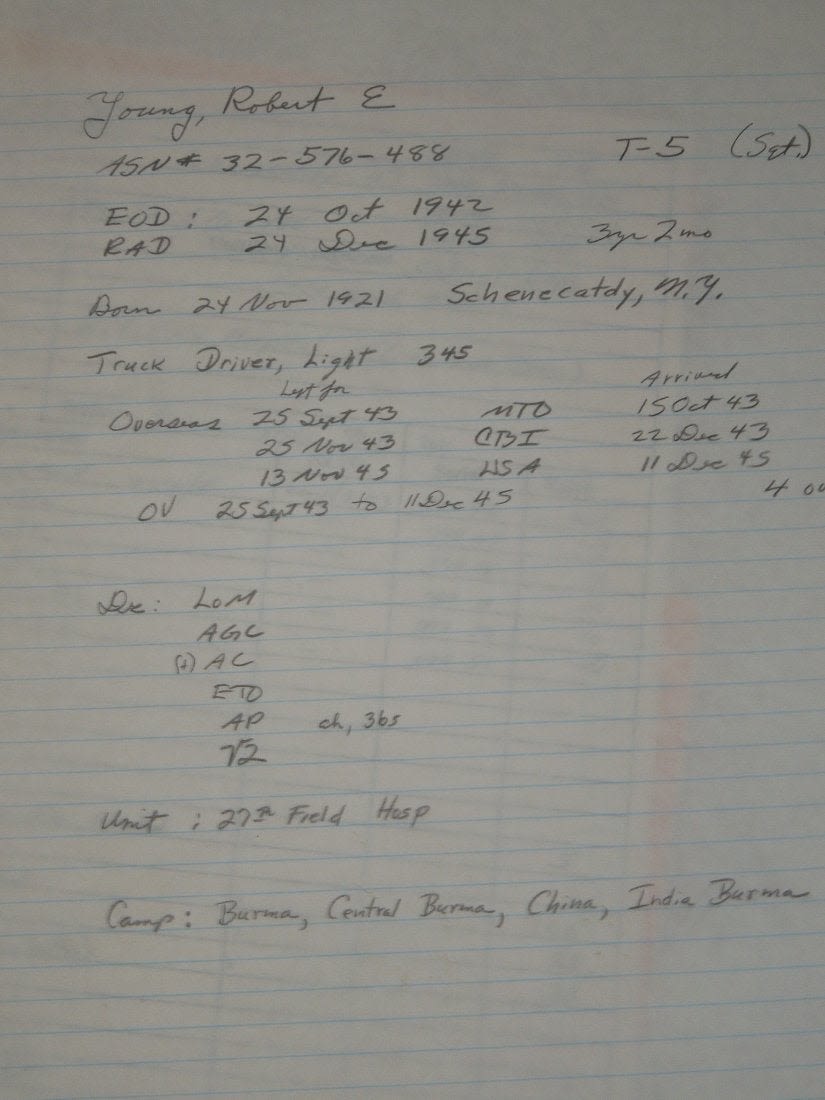 Young, Robert E
ASN# 32-576-488 T-5 (Sgt.)
EOD: 24 Oct 1942
RAD 24 Dec 1945 3yr 2mo
Born 24 Nov 1921 Schenecatdy, N.Y.
Truck Driver, Light 345
Left for Arrived
Overseas 25 Sept 43 MTO 15 Oct 43
25 Nov 43 CBI 22 Dec 43
13 Nov 45 USA 11 Dec 45
4 ov
OV 25 Sept 43 to 11 Dec 45
Dec: LoM
AGC
AC
ETO
AP ch, 3bs
V2
Unit : 27th Field Hosp
Camp: Burma, Central Burma, China, India Burma